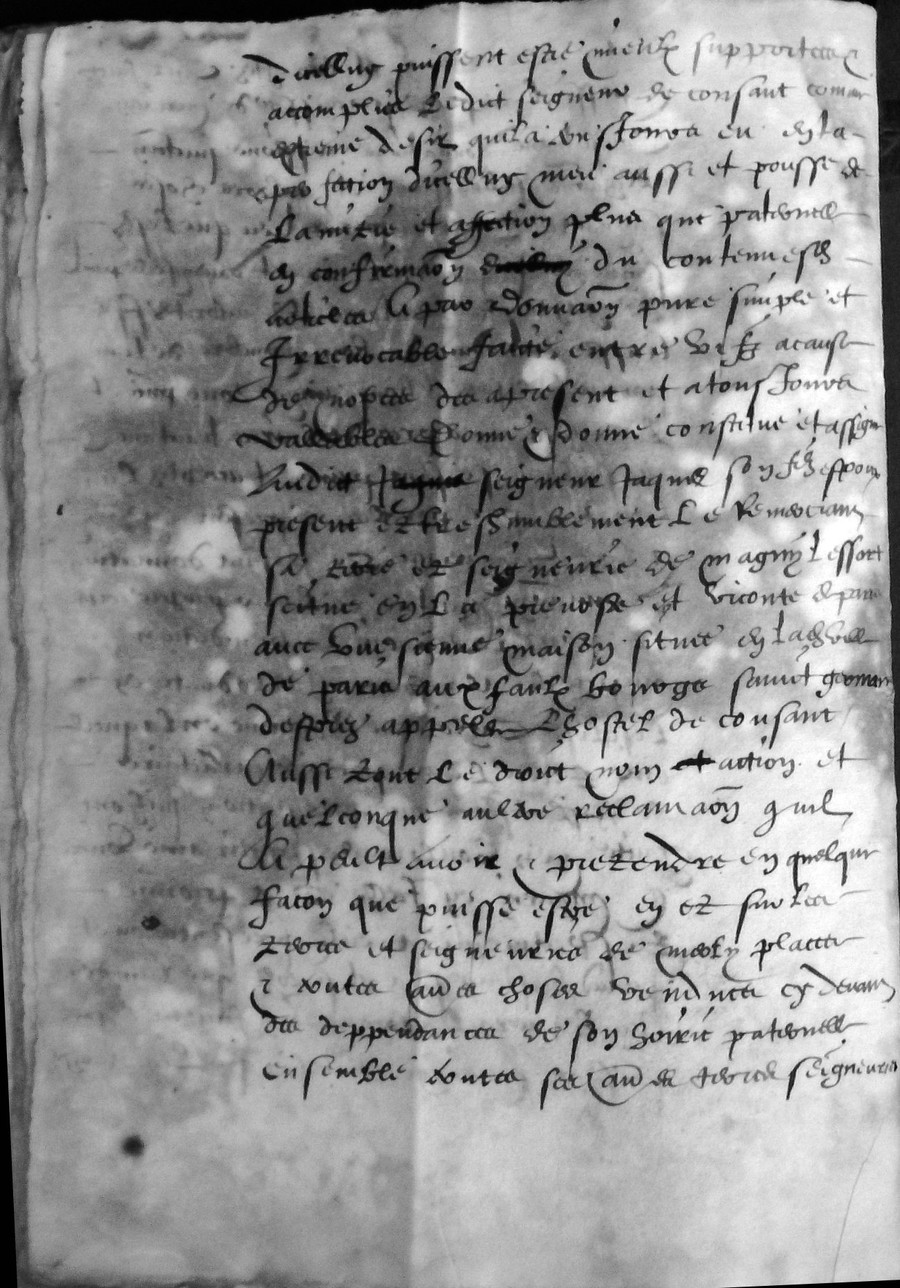 dicelluy puissent estre mieulx supportees &
accomplies Ledict seigneur de cousant comme
extreme desir quil a tousJours eu en la
perfection dicelluy meu aussi et pousse de
Lamitie et affection plus que paternelle
en confirmaon du contenu esd
articles A par donnaon pure simple et
Irrevocable faicte entre vifz a cause
de nopces des apresent et a tousJours
vallables donné & donne constitue et assigne
Audict seigneur Jaques son filz espoux
present et tres humblement Le Remerciant
sa terre et seigneurie de magny Lessart
scitue en La prevosté et viconte de paris
avec Une sienne maison situee en lad ville
de paris aux faulx bourgs sainct germain
desprez appelle Lhostel de cousant
Aussi tout Le droict nom action et
quelconque aultre reclamaon quil
A peult avoir & pretendre en quelque
facon que puisse estre en et sur les
terres et seigneuries de places
& toutes aues choses vendues cy devant
des deppendances de son hoirie paternelle
Ensemble toutes ses aues terres seigneuries